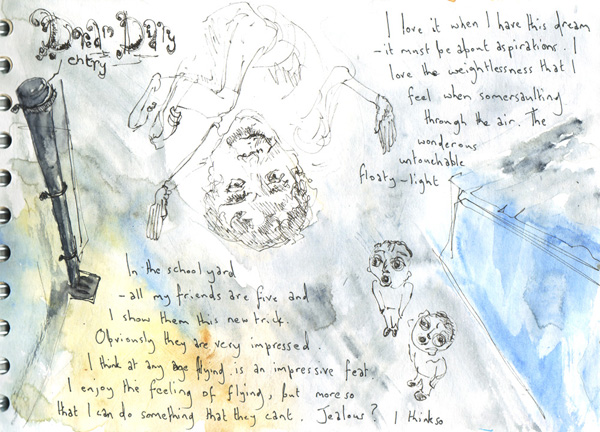 Dream Diary
entry
I love it when I have this dream
- it must be about aspirations. I
love the weightlessness that I
feel when somersaulting
through the air. The
wonderous
untouchable
floaty-light
In the school yard
- all my friends are five and
I show them this new trick.
Obviously they are very impressed.
I think at any age flying is an impressive feat.
I enjoy the feeling of flying, but more so
that I can do something that they cant. Jealous? I think so